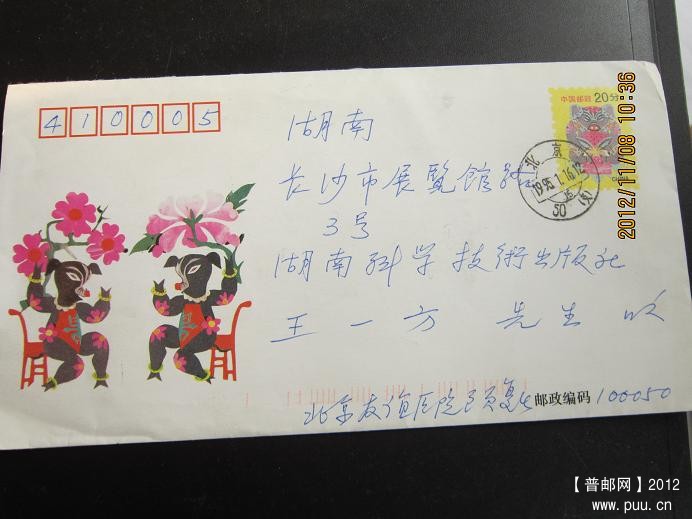 410005
湖南
长沙市展覧馆路
3号
湖南科学技術出版社
王一方 先生 收
北京友谊医院
邮政编码 100050
中国邮政 20分
北京
1995.1.16.12
50(支)
2012/11/08 10:36
【普邮网】2012
www.puu.cn